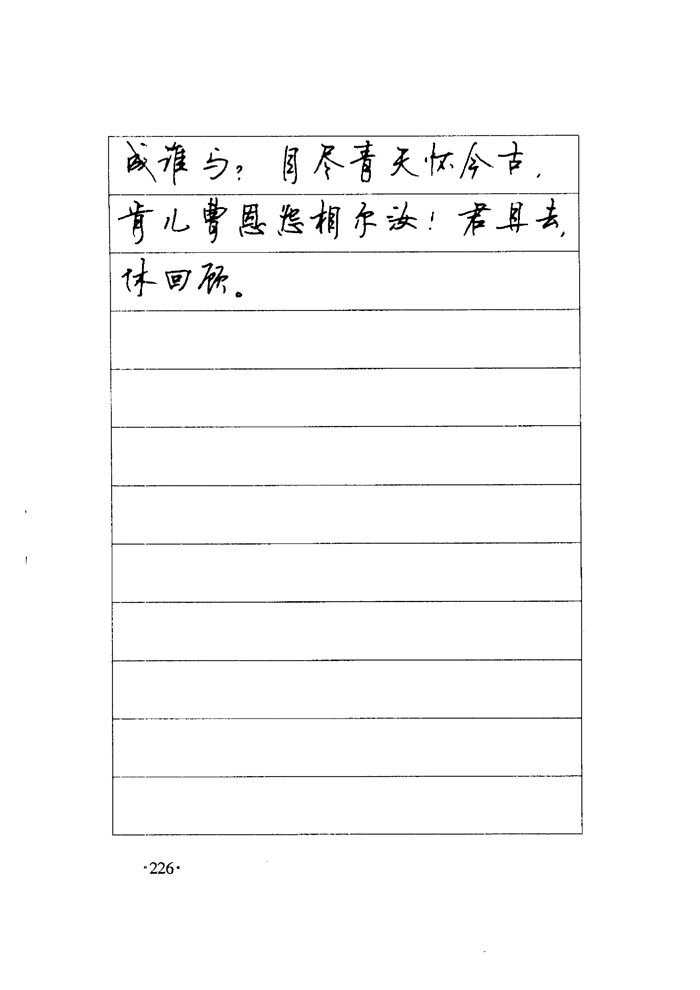 成谁与？目尽青天怀今古，
肯儿曹恩怨相尔汝！君且去，
休回顾。
·226·